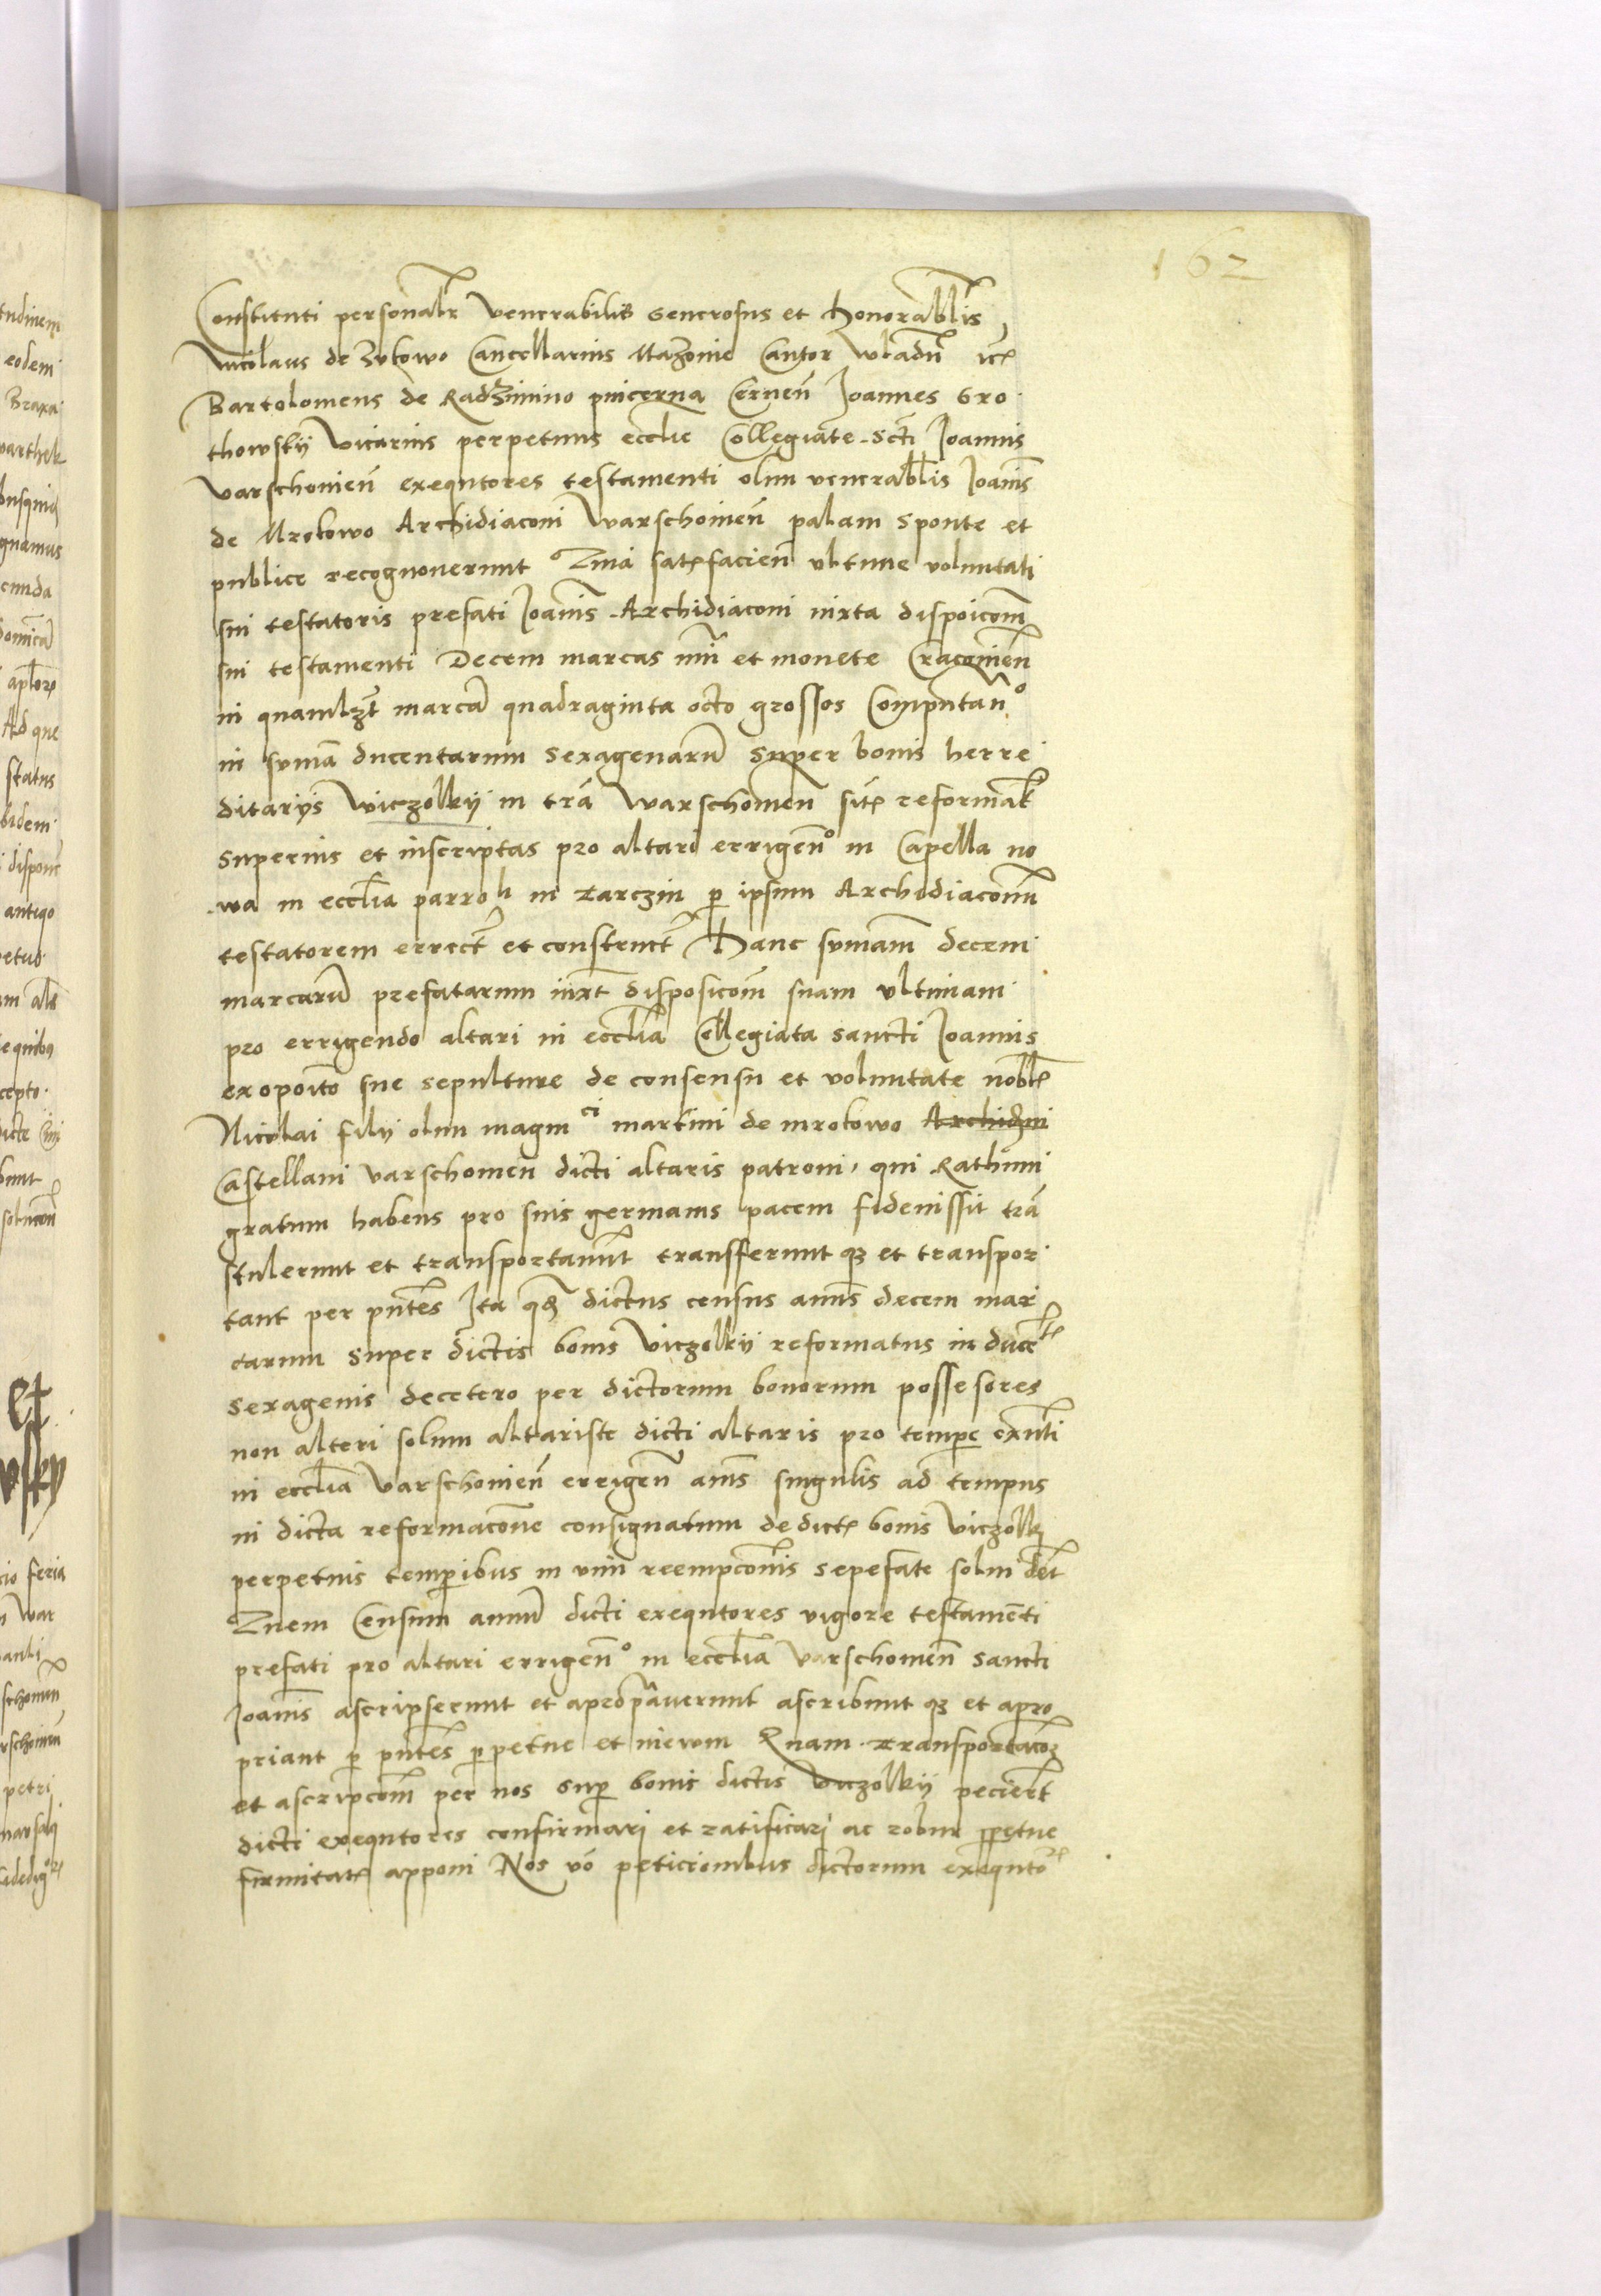 162
Constituti personalr Venerabilis Generosus et Honorablis
Nicolaus de Zukowo Cancellarius Mazouie Cantor Vladn
Bartolomeus de Radzimino pincerna Cernen Joannes Gro
thowskij Vicarius perpetuus ecclie Collegiate Scti Joannis
Varschouien exequtores testamenti olim venerablis Joanis
de Mrokowo Archidiaconi Warschouien palam sponte et
publice recognouerunt satisfacien vltime voluntati
sui testatoris prefati Joanis Archidiaconi iuxta dispoicom
sui testamenti Decem marcas nri et monete Cracouien
in quamlzt marca quadraginta octo grossos Computan
in suma ducentarum sexagenaru super bonis herre
ditarijs Viczolkij in tra Warschouien sit reformat
superius et inscriptas pro altari errigen in Capella no
wa in ecclia parroh in Tarczin p ipsum Archidiaconu
testatorem errect et construct Hanc sumam decem
marcaru prefatarum iuxt disposicom suam vltimam
pro errigendo altari in ecclia Collegiata sancti Joannis
ex opoito sue sepulture de consensu et voluntate nobl
Nicolai filij olim magnci martini de mrokowo Archidni
Castellani Varschouien dicti altaris patroni qui Rathum
gratum habens pro suis germanis pacem fideiussit tra
stulerunt et transportauut transfferunt qz et transpor
tant per pntes Ita qz dictus census anuus decem mar
carum super dictis bonis Viczolkij reformatus in duct
sexagenis decetero per dictorum bonorum possesores
non alteri solum altariste dicti altaris pro tempore exnti
in ecclia Varschouien errigen anis singulis ad tempus
in dicta reformacone consignatum de dict bonis Viczolkij
perpetuis temporibus in vim reempconis sepefate solui det
Quem Censum annuu dicti exequtores vigore testamenti
prefati pro altari errigen in ecclia Varschouien sancti
Joanis ascripserunt et apropauerunt ascribunt qz et apro
priant p pntes ppetue et in ewm Quam transportacoz
et ascripcom per nos sup bonis dictis Viczolkij pecierut
dicti exequtores confirmari et ratificari ac robur ppetue
firmitat apponi Nos vo peticionibus dictorum exequto